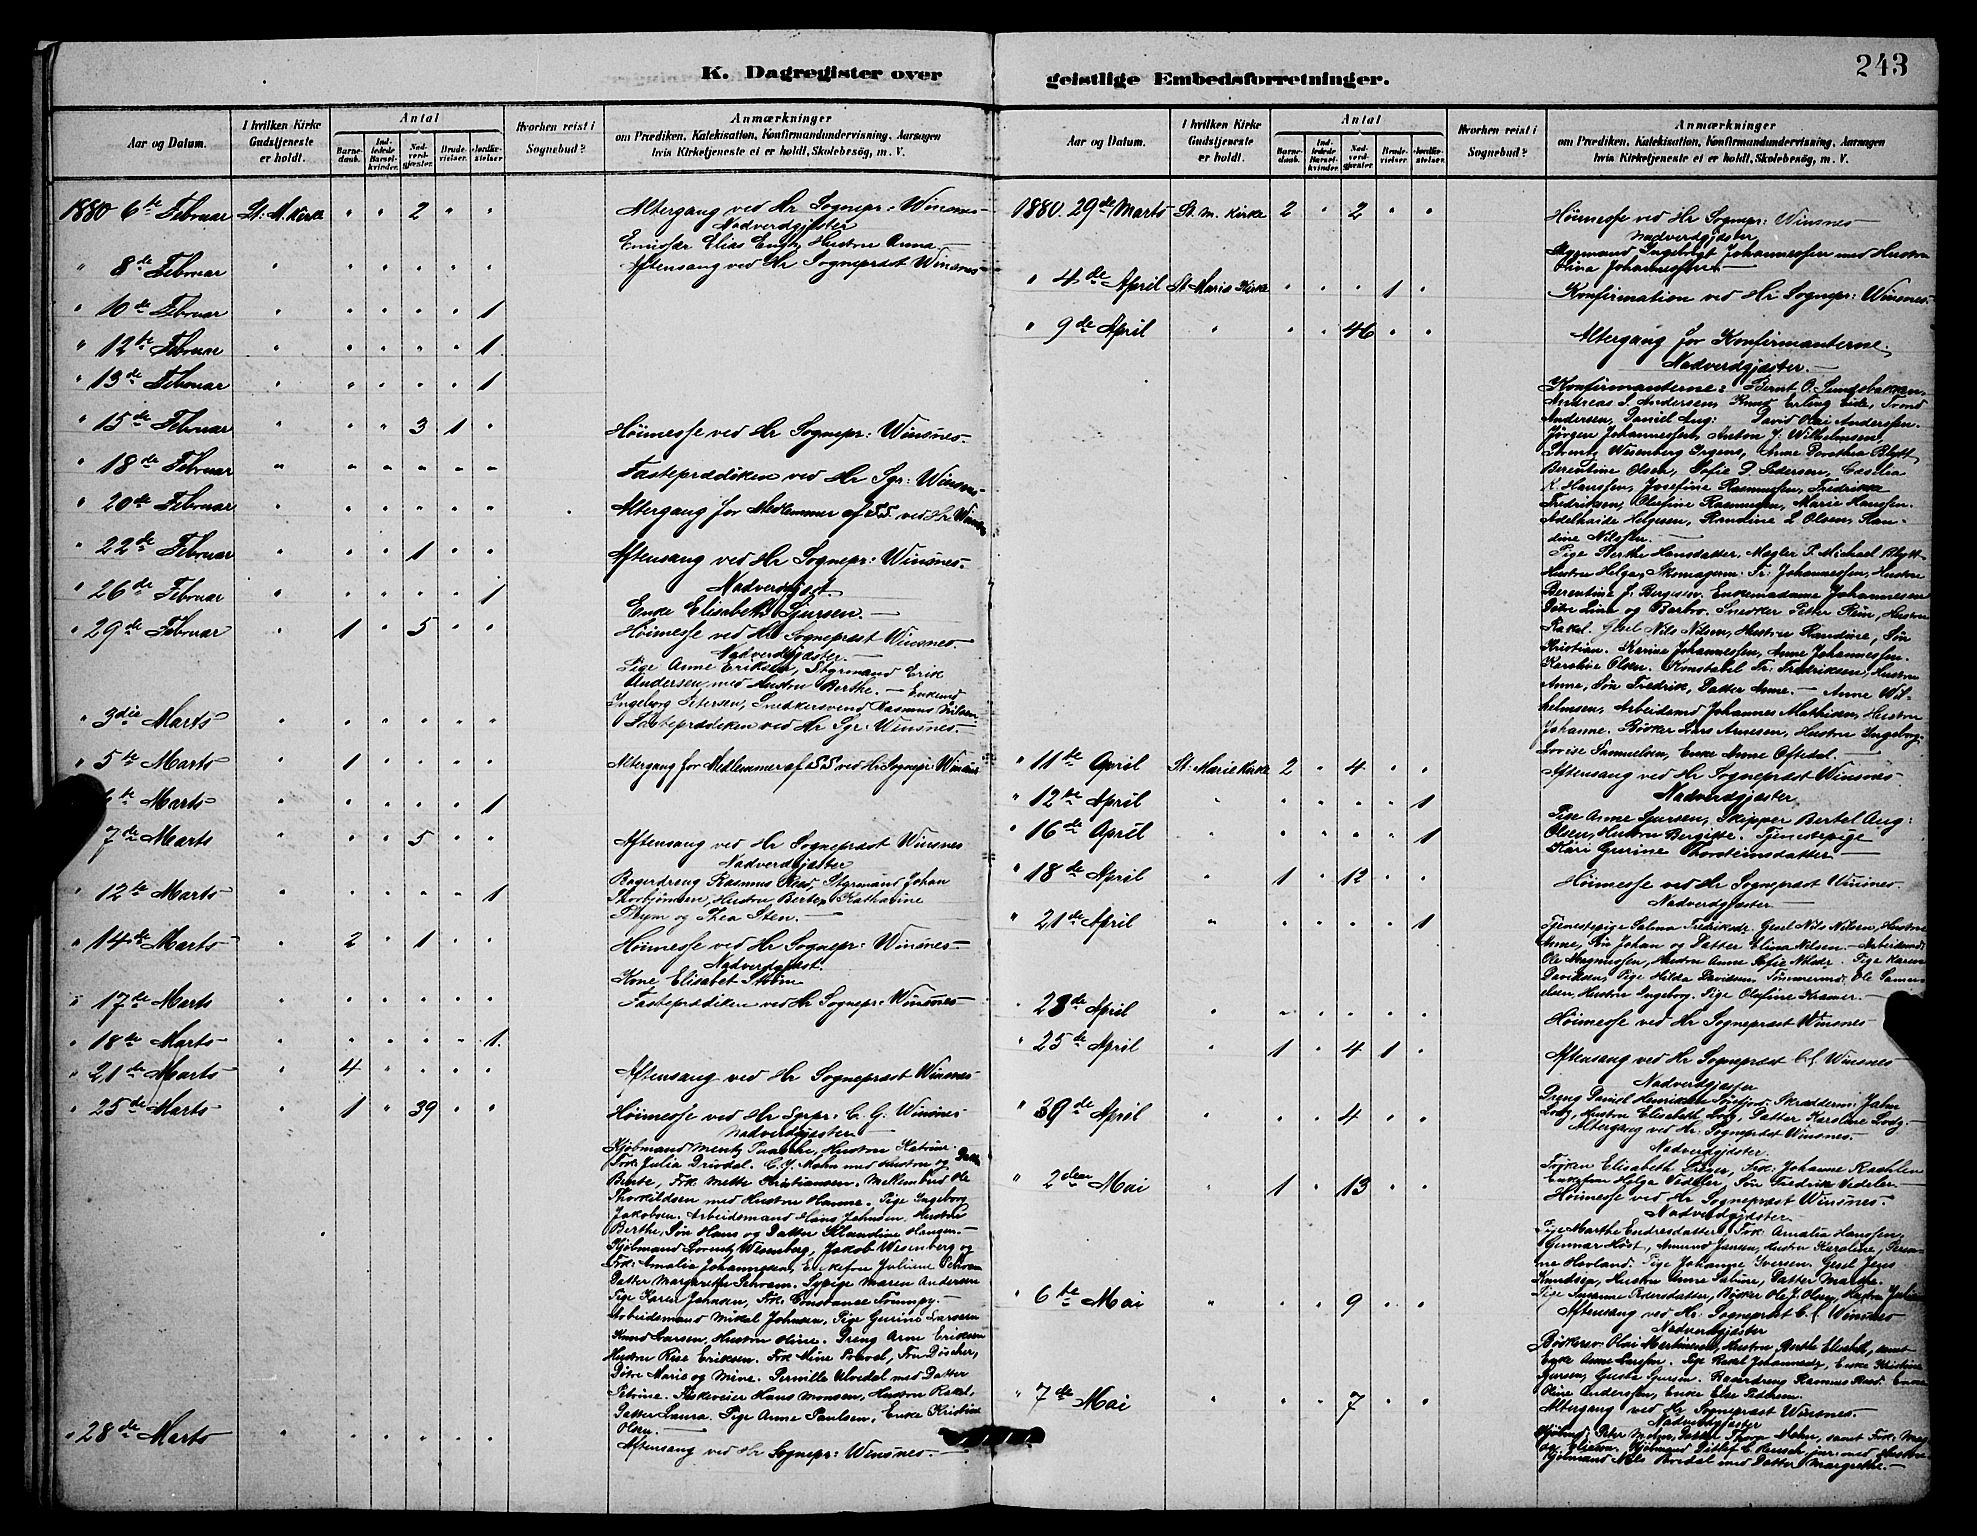 243
K. Dagregister over
geistlige Embedsforretninger.
Aar og Datum.
I hvilken Kirke Gudstjeneste er holdt.
Antal
Barnedaab.
Indledede Barselkvinder.
Nadverdgjæster.
Brudevielser.
Jordfæstelser.
Hvorhen reist i Sognebud?
Anmærkninger
om Prædiken, Katekisation, Konfirmandundervisning, Aarsagen
hvis Kirketjeneste ei er holdt, Skolebesøg, m. V.
1880 6te Februar St: M. Kirke " " 2 " " Altergang ved Hr Sognepr. Winsnes
Nadverdgjæster
Emissær Elias Hustru Anna
" 8de Februar " " " " " " Aftensang ved Hr Sognepræst Winsnes
" 10de Februar " " " " " 1
" 12te Februar " " " " " 1
" 13de Februar " " " " " 1
" 15de Februar " " " 3 1 " Höimesse ved Hr Sognepr: Winsnes
" 18de Februar " " " " " " Fasteprædiken ved Hr Sgr: Winsnes
" 20de Februar " " " " " " Altergang for Medlemmer af SS. ved Hr Winsnes
" 22de Februar " " " 1 " " Aftensang ved Hr Sognepr: Winsnes
Nadverdgjæst
Enke Elisabeth Sjursen.
" 26de Februar " " " " " 1
" 29de Februar " 1 " 5 " " Höimesse ved Hr Sognepræst Winsnes
Nadverdgjæster
Pige Anne Eriksen, Styrmand Erik
Andersen, med Hustru Berthe. Enkemd
Ingeborg Petersen, Snedkersvend Rasmus Nilsen
" 3die Marts " " " " " " Fasteprædiken ved Hr Sgr: Winsnes
" 5te Marts " 1 " " " " Altergang for Medlemmer af SS ved Hr Sognepr: Winsnes
6te Marts " " " " " 1
7de Marts " " " 5 " " Aftensang ved Hr Sognepræst Winsnes
Nadverdgjæster
Bagerdreng Rasmus Styrmand Johan
Thorbjörnsen, Hustru Berte, Katharine
og Thea Sten.
" 12te Marts " " " " " 1
" 14de Marts " 2 " 1 " " Höimesse ved Hr Sognepr: Winsnes
Nadverdgjæst.
Kone Elisabet Ström
" 17de Marts " " " " " " Fasteprædiken ved Hr Sognepr: Winsnes
" 18de Marts " " " " " 1.
" 21de Marts " 4 " " " " Aftensang ved Hr Sognepræst Winsnes
" 25de Marts " 1 " 39 " " Höimesse ved Hr Sgpr: C. G. Winsnes
Nadverdgjæster
Kjöbmand Mentz Paasche, Hustru Katrine
Frk. Julia Drivdal. C. J. Mohn med Hustru og Datter
Bente, Frk. Mette Kristiansen. Ole
Thorkildsen med Hustru Hanne. Pige Ingeborg
Jakobsen. Arbeidsmand Hans Johnsen, Hustru
Berthe, Sön Hans og Datter Klaudine Hansen.
Kjöbmand Lorentz Wesenberg, Jakob Wesenberg og
Frk: Amalia Johannesen, Enkefru Juliane
Datter Margarethe Schram. Sypige Maren Andersen
Pige Karen Johnsen, Frk: Constanse Trumpy.
Arbeidsmand Mikal Johnsen, Pige Gurine Larsen
Knud Larsen, Hustru Oline. Dreng Arne Eriksen
Hustru Rise Eriksen. Frk Mine Fru Döscher,
Dötre Marie og Mine. Pernille Ulvedal med Datter
Petrine. Fiskeveier Hans Monsen, Hustru Rakel
Datter Laura. Pige Anne Paulsen, Enke Kristine
Olsen.
" 28de Marts " " " " " " Aftensang ved Hr Sognepr: Winsnes.
Aar og Datum.
I hvilken Kirke Gudstjeneste er holdt.
Antal
Barnedaab.
Indledede Barselkvinder.
Nadverdgjæster.
Brudevielser.
Jordfæstelser.
Hvorhen reist i Sognebud?
Anmærkninger
om Prædiken, Katekisation, Konfirmandundervisning, Aarsagen
hvis Kirketjeneste ei er holdt, Skolebesøg, m. V.
1880. 29de Marts St. M. Kirke 2 " 2 " " Höimesse ved Hr Sognepr: Winsnes
Nadverdgjæster
Styrmand Ingebrigt Johannessen med Hustru
Olina Johannessen.
" 4de April St Maria Kirke " " " 1 " Konfirmation ved Hr Sognepr: Winsnes
" 9de April " " " 46 " " Altergang for Konfirmanterne.
Nadverdgjæster.
Konfirmanterne: Bernt O. Sundsbakken,
Andreas S. Andersen, Knud Erling Eide, Trond
Andersen, Daniel Aug: David Olai Anderssen.
Jörgen Johannessen, Anton J. Wilhelmsen,
Wesenberg Irgens, Anne Dorothea Blytt
Berentine Olsen, Sofie D. Pedersen, Cæsilia
K. Hanssen, Josefine Rasmussen, Fredrikke
Fredriksen, Olefine Rasmussen, Marie Hanssen.
Adelheide Helgesen, Randine L Olsen, Ran-
dine Nilssen.
Pige Berthe Hansdatter, Mægler P. Michael Blytt
Hustru Helga, Skomagerm. Fr: Johannessen, Hustru
Berentine J. Enkemadame Johannesen
Dötre Lina og Barbro. Snedker Peter Hustru
Rakel. Gesel Nils Nilsen, Hustru Randine, Sön
Kristian. Karine Johannessen, Anne Johannessen.
Karoline Olsen. Konstabel Fr: Fredriksen, Hustru
Anne, Sön Fredrik, Datter Anne. Anne Wil-
helmsen, Arbeidsmd Johannes Mathisen, Hustru
Johanne. Bödker Lars Arnesen, Hustru Ingeborg.
Lovise Samuelsen, Enke Anne Oftedal.
" 11te April St. Marie Kirke 2 " 4 " " Aftensang ved Hr Sognepræst Winsnes
Nadverdgjæster
Pige Anne Sjursen, Skipper Bertel Aug:
Olsen, Hustru Bergitte. Tjenestepige
Kari Gurine Thorsteinsdatter
" 12te April " " " " " 1
" 16de April " " " " " 1
" 18de April " 1 " 12 " " Höimesse ved Hr Sognepræst Winsnes.
Nadverdgjæster.
Tjenestepige Salma Gesel Nils Nilsen, Hustru
Anne, Sön Johan og Datter Elina Nilsen. Arbeidsmd
Ole Magnessen, Hustru Anne Sofie Pige Karen
Davidsen, Pige Hilda Davidsen, Tömmermd. Ole Samu-
elsen, Hustru Ingeborg. Pige Olefine Kramer.
" 21de April " " " " " 1
" 23de April " " " " " " Höimesse ved Hr Sognepræst Winsnes
" 25de April " 1 " 4 1 " Aftensang ved Hr Sognepræst C. G. Winsnes
Nadverdgjæster
Dreng Daniel Henriksen Skrædderm: Jahn
Lody, Hustru Elisabeth Lody, Datter Karoline Lody.
" 30de April " " " 4 " " Altergang ved Hr: Sognepræst Winsnes.
Nadverdgjæster.
Fröken Elisabeth Frk. Johanne
Enkefru Helga Vedeler, Sön Fredrik Vedeler.
" 2den Mai " 1 " 13 " " Höimesse ved Hr Sognepræst Winsnes.
Nadverdgjæster
Pige Marthe Endresdatter, Frk: Amalia Hanssen,
Gunnar Höst, Amund Jensen, Hustru Karoline,
Hovland. Pige Johanne Iversen. Gesel Jens
Knudsen, Hustru Anne Sabine, Datter Marthe.
Pige Susanne Pedersdatter, Bödker Ole J. Olsen, Hustru Juliane
" 6te Mai " " " 9 " " Aftensang ved Hr: Sognepræst C. G. Winsnes
Nadverdgjæster
Bödkersv. Olai Martinsen, Hustru Berthe Elisabet, samt
Enke Anne Larsen. Pige Rakel Johannesd, Enke Kristine
Sjursen, Gusta Sjursen. Bagerdreng Rasmus Enke
Oline Anderssen, Enke Else Pedersen.
" 7de Mai " " " 7 " " Altergang ved Hr Sognepræst Winsnes.
Nadverdgjæster
Kjöbmd. Peter Mohn, Datter Thora Mohn, samt Frk.
Kjöbmand Ditlef C. jun: med Hustru
Kjöbmand Nils Bredal med Datter Margrethe.